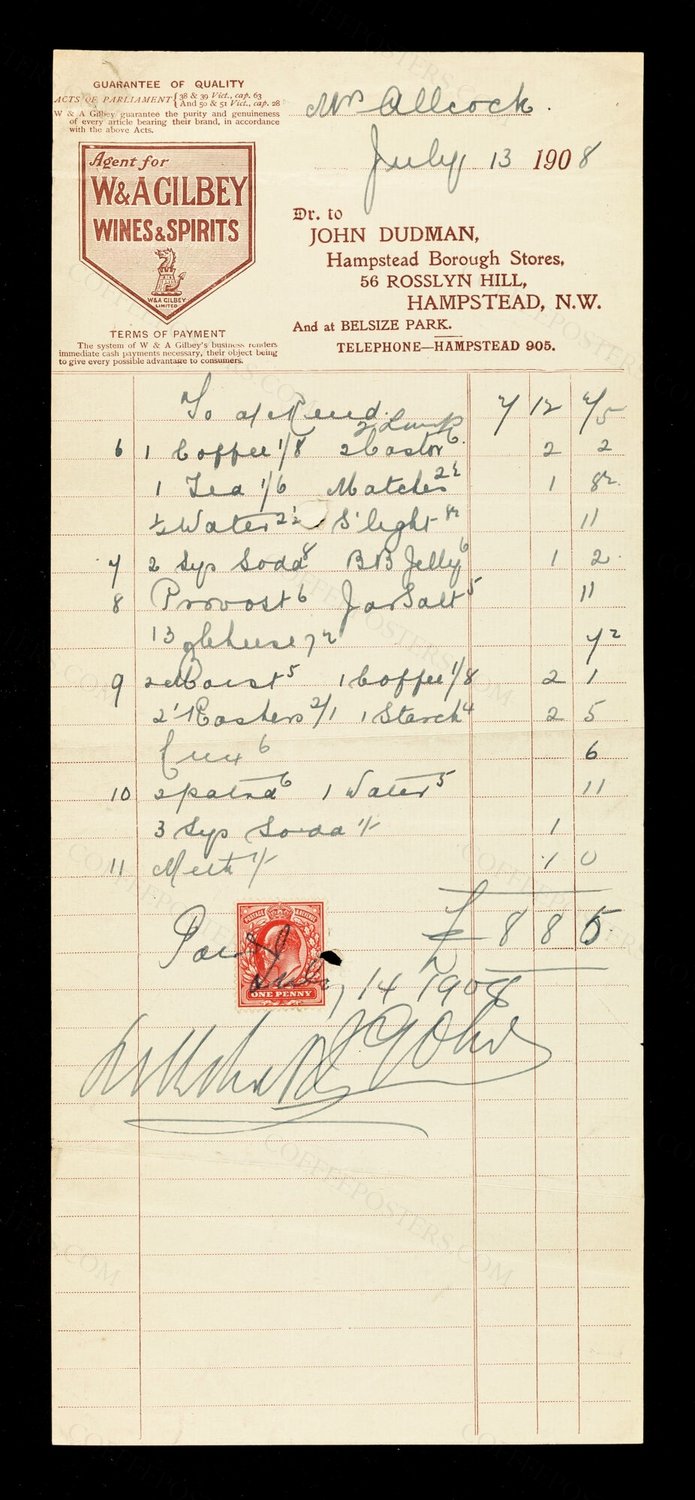 GUARANTEE OF QUALITY
ACTS OF PARLIAMENT { 38 & 39 Vict., cap. 63
And 50 & 51 Vict., cap. 28
W & A Gilbey guarantee the purity and genuineness
of every article bearing their brand, in accordance
with the above Acts.
Agent for
W&A GILBEY
WINES & SPIRITS
W&A GILBEY
LIMITED
TERMS OF PAYMENT
The system of W & A Gilbey's business renders
immediate cash payments necessary, their object being
to give every possible advantage to consumers.
Mrs Allcock.
July 13 1908
Dr. to
JOHN DUDMAN,
Hampstead Borough Stores,
56 ROSSLYN HILL,
HAMPSTEAD, N.W.
And at BELSIZE PARK.
TELEPHONE—HAMPSTEAD 905.
To a/c Rend. 7 12
2 Lump
6 1 Coffee 1/8 2 Castor 6 2 2
1 Tea 1/6 Matches 2½ 1 8½
½ Water 2½ S'light 11
7 2 Syp Soda 8 BB Jelly 6 1 2
8 Provost 6 Jar Salt 5 11
Cheese 7½ 7½
9 2 Moist 5 1 Coffee 1/8 2 1
Rashers 2/1 1 Starch 4 2 5
6 6
10 2 6 1 Water 5 11
3 Syp Soda 1/- 1
11 1/- 1 0
£ 8 8 5
Paid
POSTAGE REVENUE
ONE PENNY
July 14 1908
COFFEEPOSTERS.COM